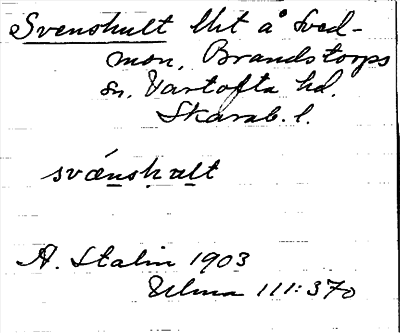 Svenshult lht å Sved-
mon, Brandstorps
sn, Vartofta hd.
Skarab. l.
svǽnsḥult
A. Stalin 1903
Ulma 111:370